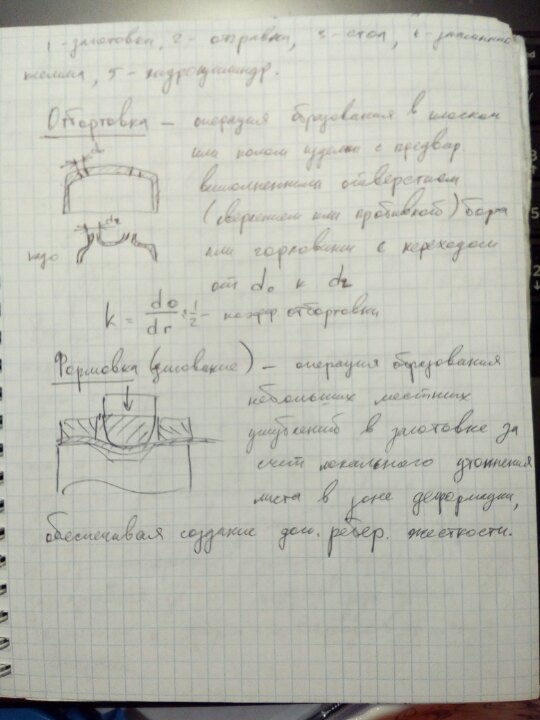 1 - заготовка, 2 - оправка, 3 - стол, 4 - зажимные
клещи, 5 - гидроцилиндр.
Отбортовка – операция образования в плоском
или полом изделии с предвар.
выполненным отверстием
(сверлением или пробивкой) борта
или горловины с переходом
от d₀ к dг
d₀
dг
надо
k = d₀/dг ÷ 1/2 – коэфф отбортовки
Формовка (рисование) – операция образования
небольших местных
углублений в заготовке за
счет локального утонения
листа в зоне деформации,
обеспечивая создание доп. ребер. жесткости.